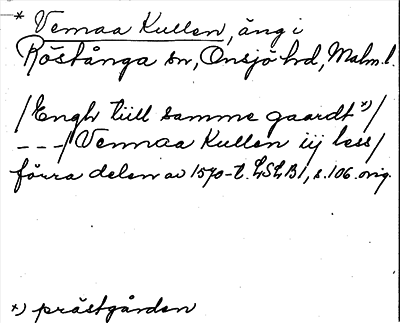 * Vemaa Kullen, äng i
Röstånga sn, Onsjö hd, Malm. l.
/Engh till samme gaardt *)/
---/Vemmaa Kullen iij less/
förra delen av 1570-t. LSLB1, s. 106. orig.
*) prästgården